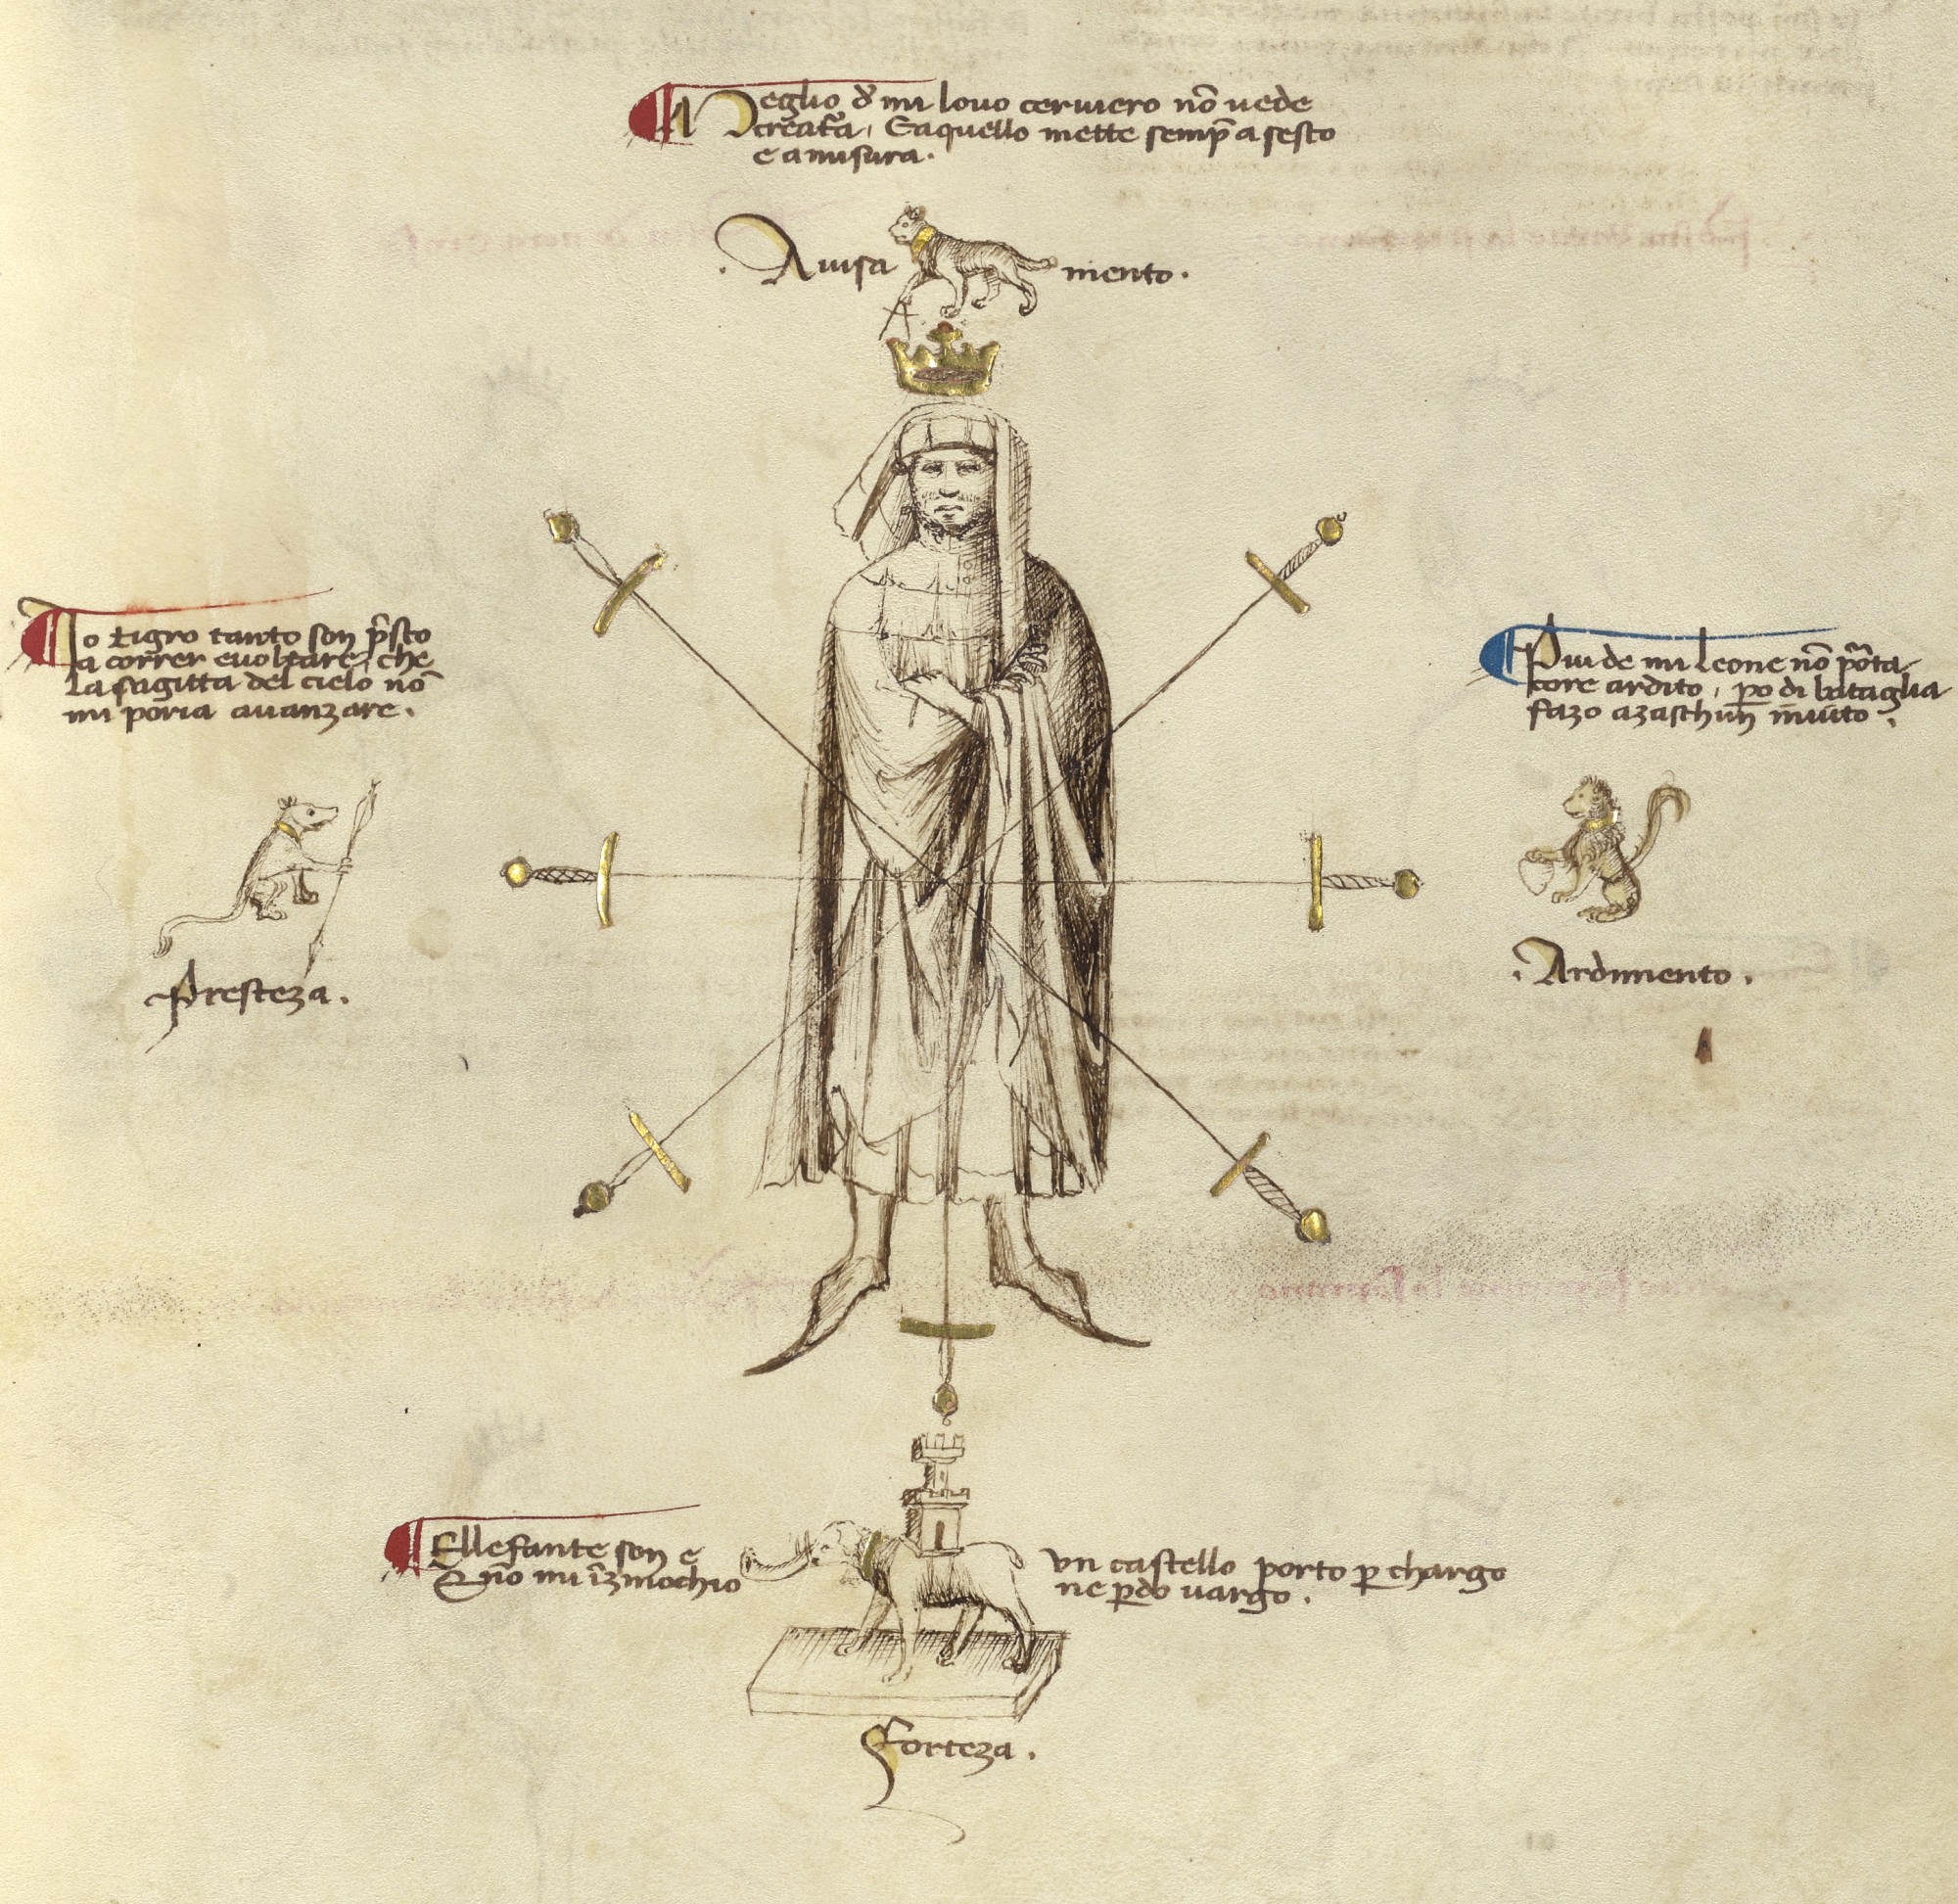 Meglio de mi lovo cerviero nō vede
creat̄a, E aquello mette semp̄ a sesto
e a misura.
Avisa mento.
Io tigro tanto son p̄sto
a correr e voltare, che
la sagitta del cielo nō
mi poria avanzare.
Piu de mi leone nō porta
core ardito, po di bataglia
fazo a zaschun invito.
Presteza.
Ardimento.
Ellefante son e
un castello porto p chargo
E nō mi īzinochio
ne pdo vargo.
Forteza.